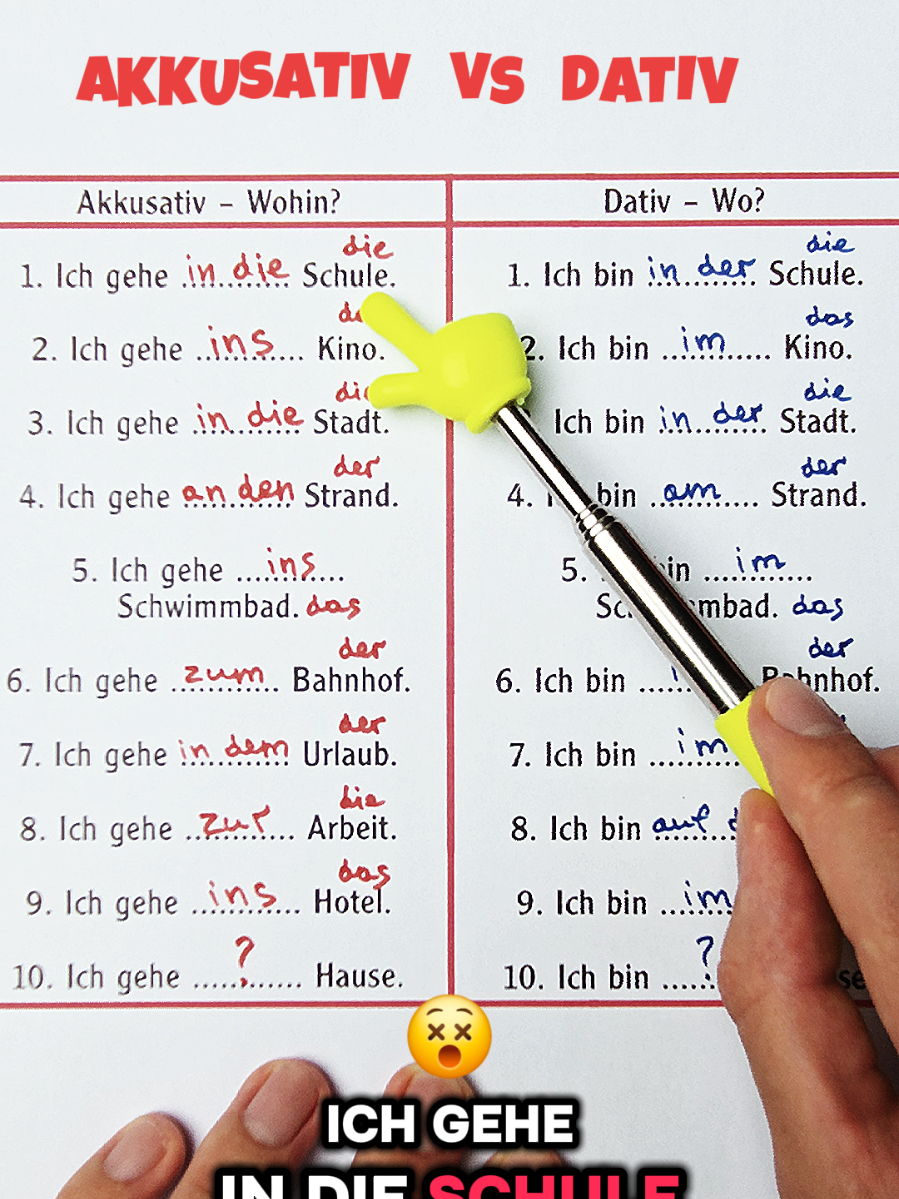 AKKUSATIV VS DATIV
Akkusativ – Wohin?
Dativ – Wo?
die
1. Ich gehe in die Schule.
2. Ich gehe ins Kino.
3. Ich gehe in die Stadt.
der
4. Ich gehe an den Strand.
5. Ich gehe ins
Schwimmbad. das
der
6. Ich gehe zum Bahnhof.
der
7. Ich gehe in dem Urlaub.
die
8. Ich gehe zur Arbeit.
das
9. Ich gehe ins Hotel.
?
10. Ich gehe ............ Hause.
die
1. Ich bin in der Schule.
das
2. Ich bin im Kino.
die
Ich bin in der Stadt.
der
4. bin am Strand.
5. im
das
der
6. Ich bin Bahnhof.
7. Ich bin im
8. Ich bin auf
9. Ich bin im
?
10. Ich bin
ICH GEHE
IN DIE SCHULE